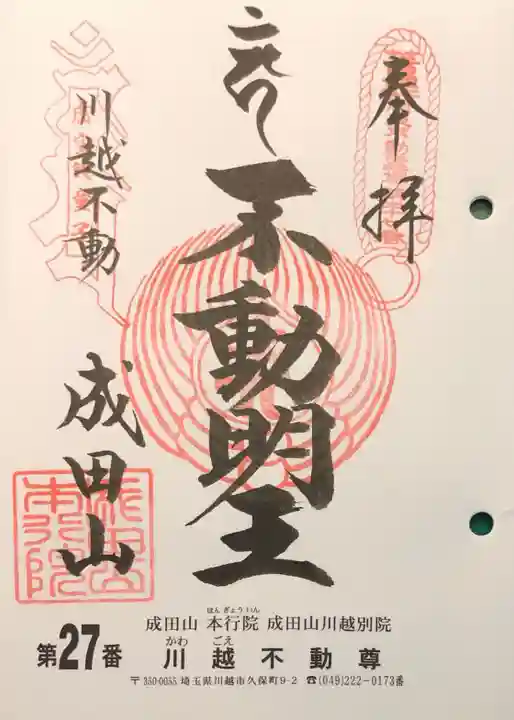 奉拝
不動明王
川越不動
成田山
成田山 本行院 成田山川越別院
ほんぎょういん
第27番
川越不動尊
かわ ごえ
〒350-0055 埼玉県川越市久保町9-2 ☎(049)222-0173番